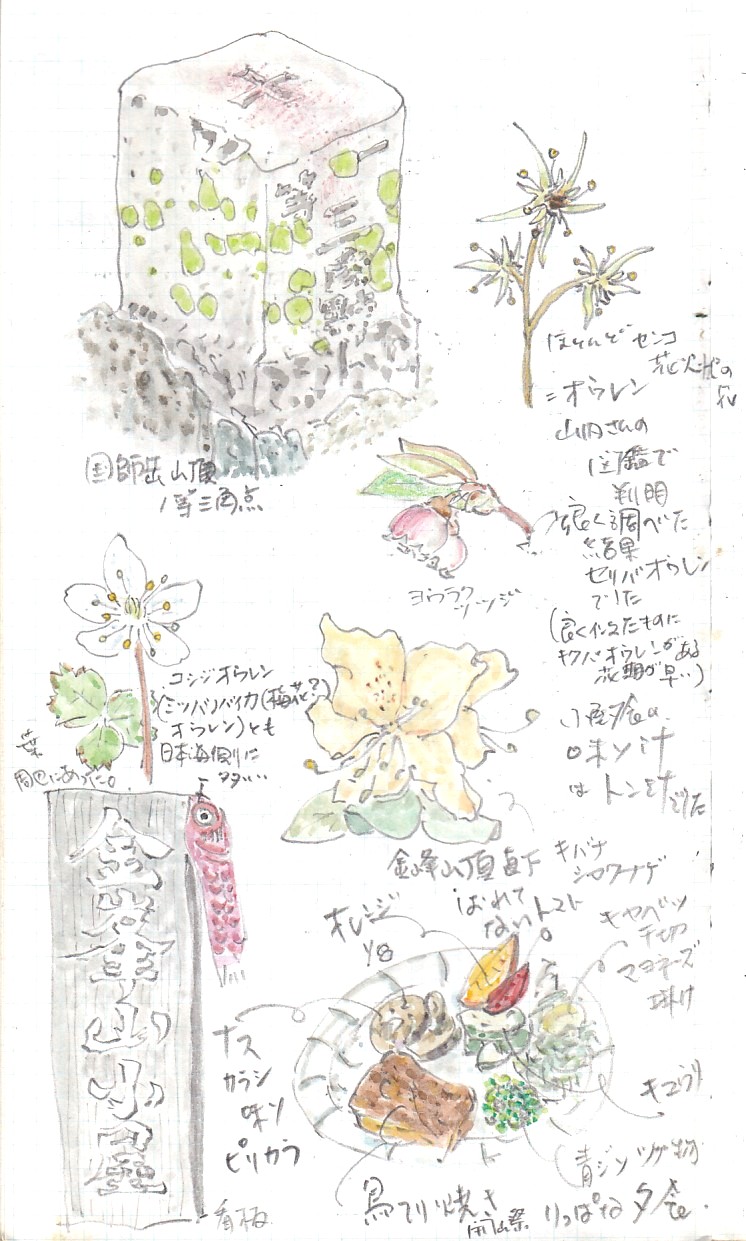 等三角点
国師岳山頂
1等三角点
ほとんどセンコ
花火状の
花
=オウレン
山川さんの
図鑑で
判明
良く調べた
結果
セリバオウレン
でした
(良くにたものに
キクバオウレンがある
花期が早い)
ヨウラク
ツツジ
コシジオウレン
(ミツバノバイカ(梅花?)
オウレン)とも
日本海側に
多い
葉
周囲にあった。
金峰山頂直下
キバナ
シャクナゲ
小屋夕食の
味ソ汁
は トン汁でした
金峰山小屋
看板
オレンジ
1/8
はなれて
ない トマト
キャベツ
千切
マヨネーズ
掛け
ナス
カラシ
味ソ
ピリカラ
キュウリ
青ジソツケ物
鳥てり焼き
開山祭
りっぱな夕食.